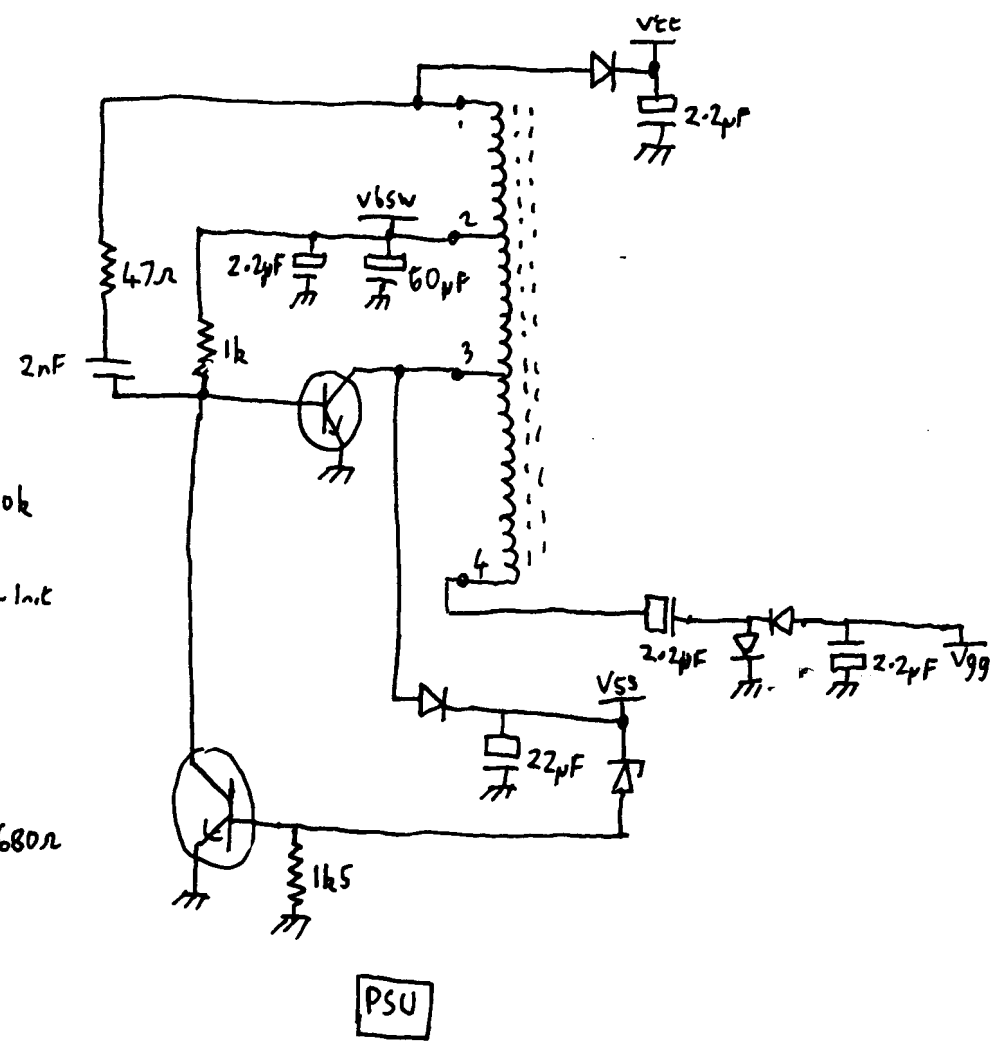 Vtt
2.2µF
Vbsw
2
2.2µF
60µF
47Ω
1k
3
2nF
0k
Init
4
2.2µF
2.2µF
Vgg
22µF
680Ω
1k5
PSU